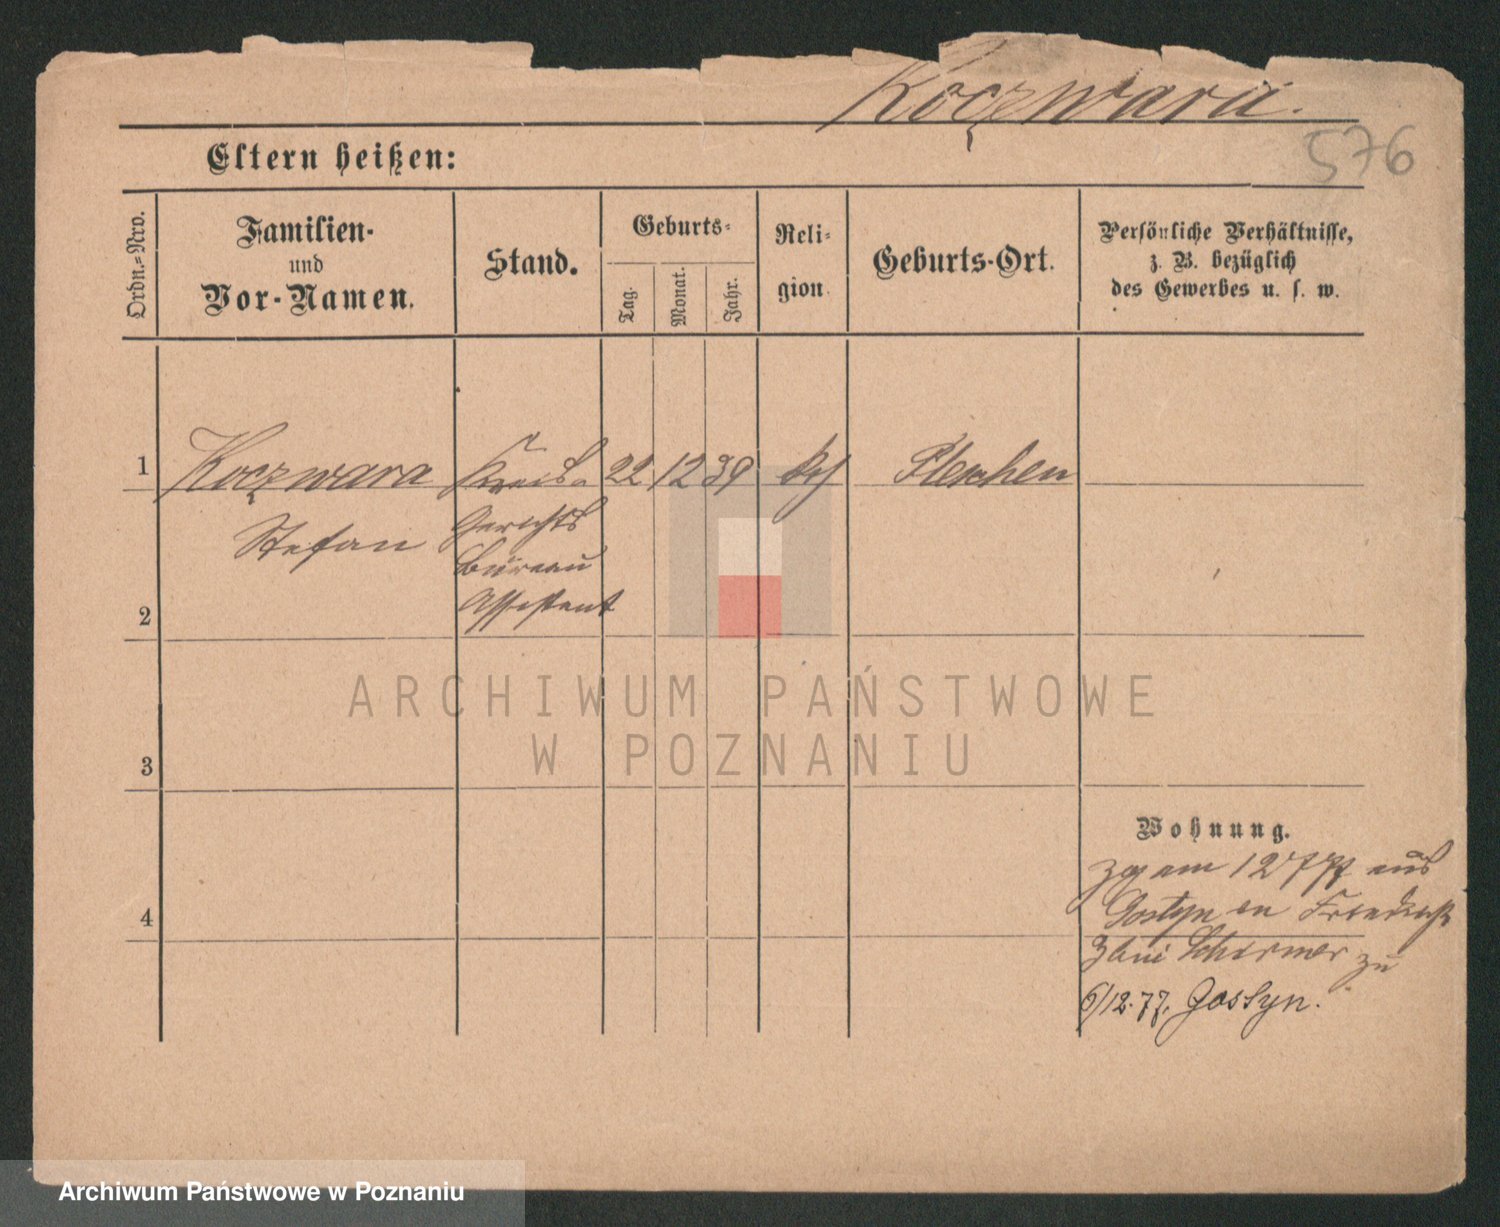 Koczwara.
576
Eltern heißen:
Ordn.-Nro.
Familien-
und
Vor-Namen.
Stand.
Geburts-
Tag.
Monat.
Jahr.
Reli-
gion.
Geburts-Ort.
Persönliche Verhältnisse,
z. B. bezüglich
des Gewerbes u. s. w.
1 Koczwara Kreis- 22 12 39 Pleschen
Stefan Gerichts
Büreau
Assistent
2
3
ARCHIWUM PAŃSTWOWE
W POZNANIU
Wohnung.
zog am 12 7 77 aus
4
Gostyn Friedrichstr
3 bei Schirmer zu
6/12.77. Gostyn.
Archiwum Państwowe w Poznaniu